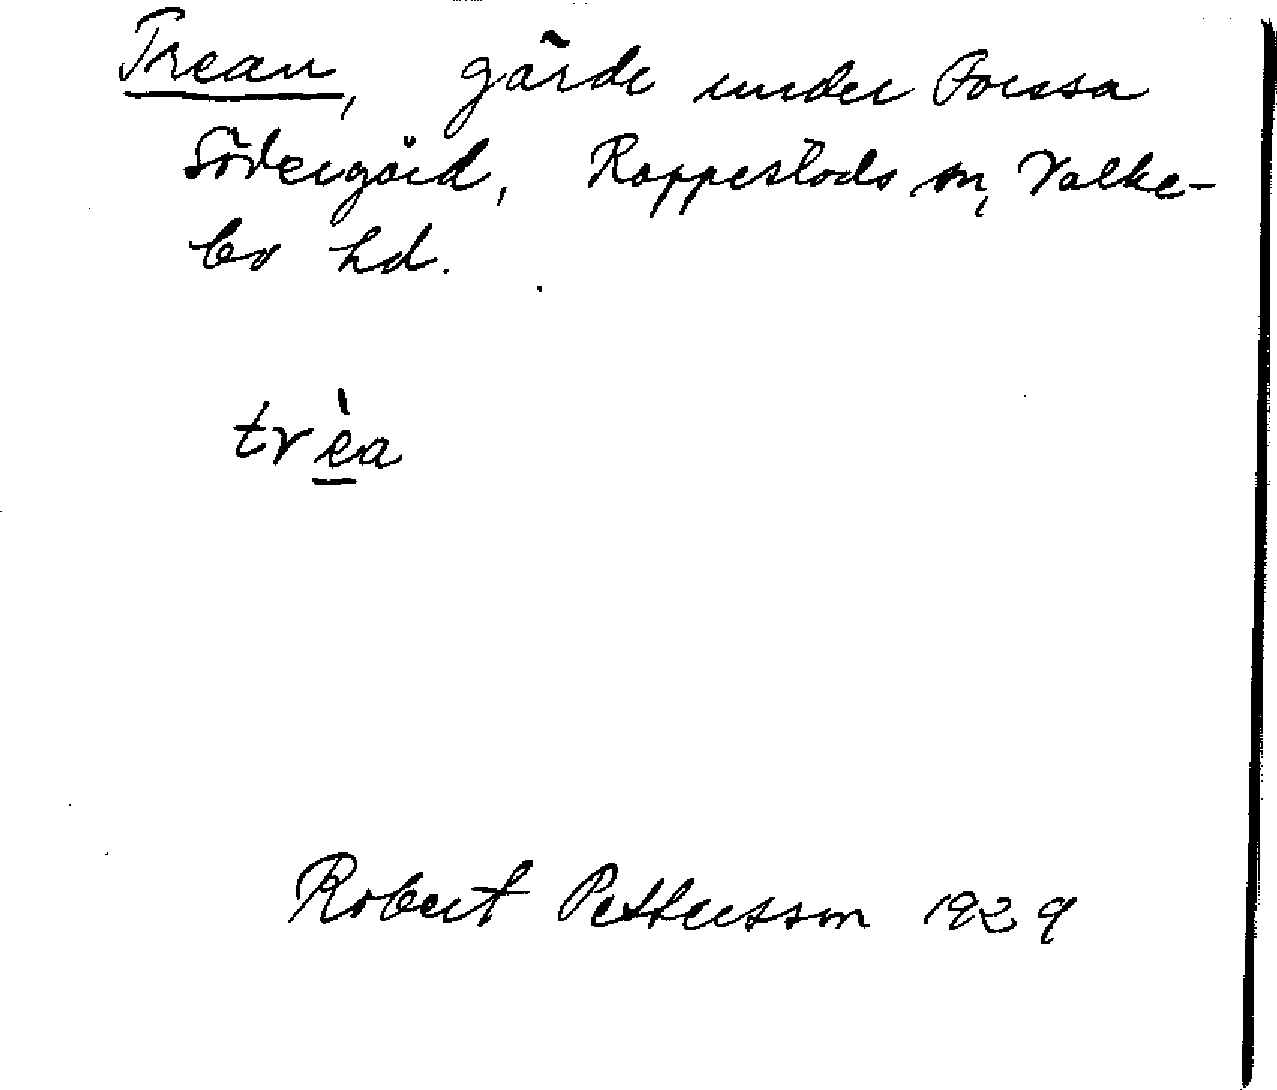 Trean, gärde under Forssa
Södergård, Rappestads sn, Valke-
bo hd.
trèa
Robert Pettersson 1929